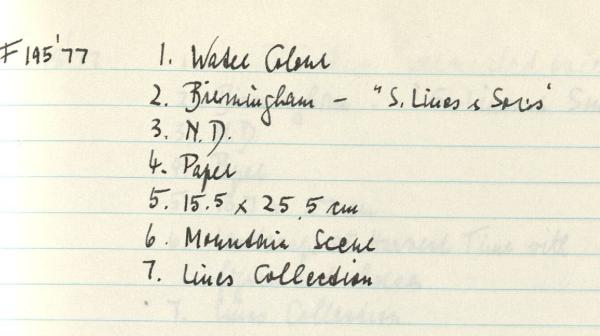 F 195'77 1. Water Colour
2. Birmingham - "S. Lines & Sons"
3. N.D.
4. Paper
5. 15.5 x 25.5 cm
6. Mountain Scene
7. Lines Collection